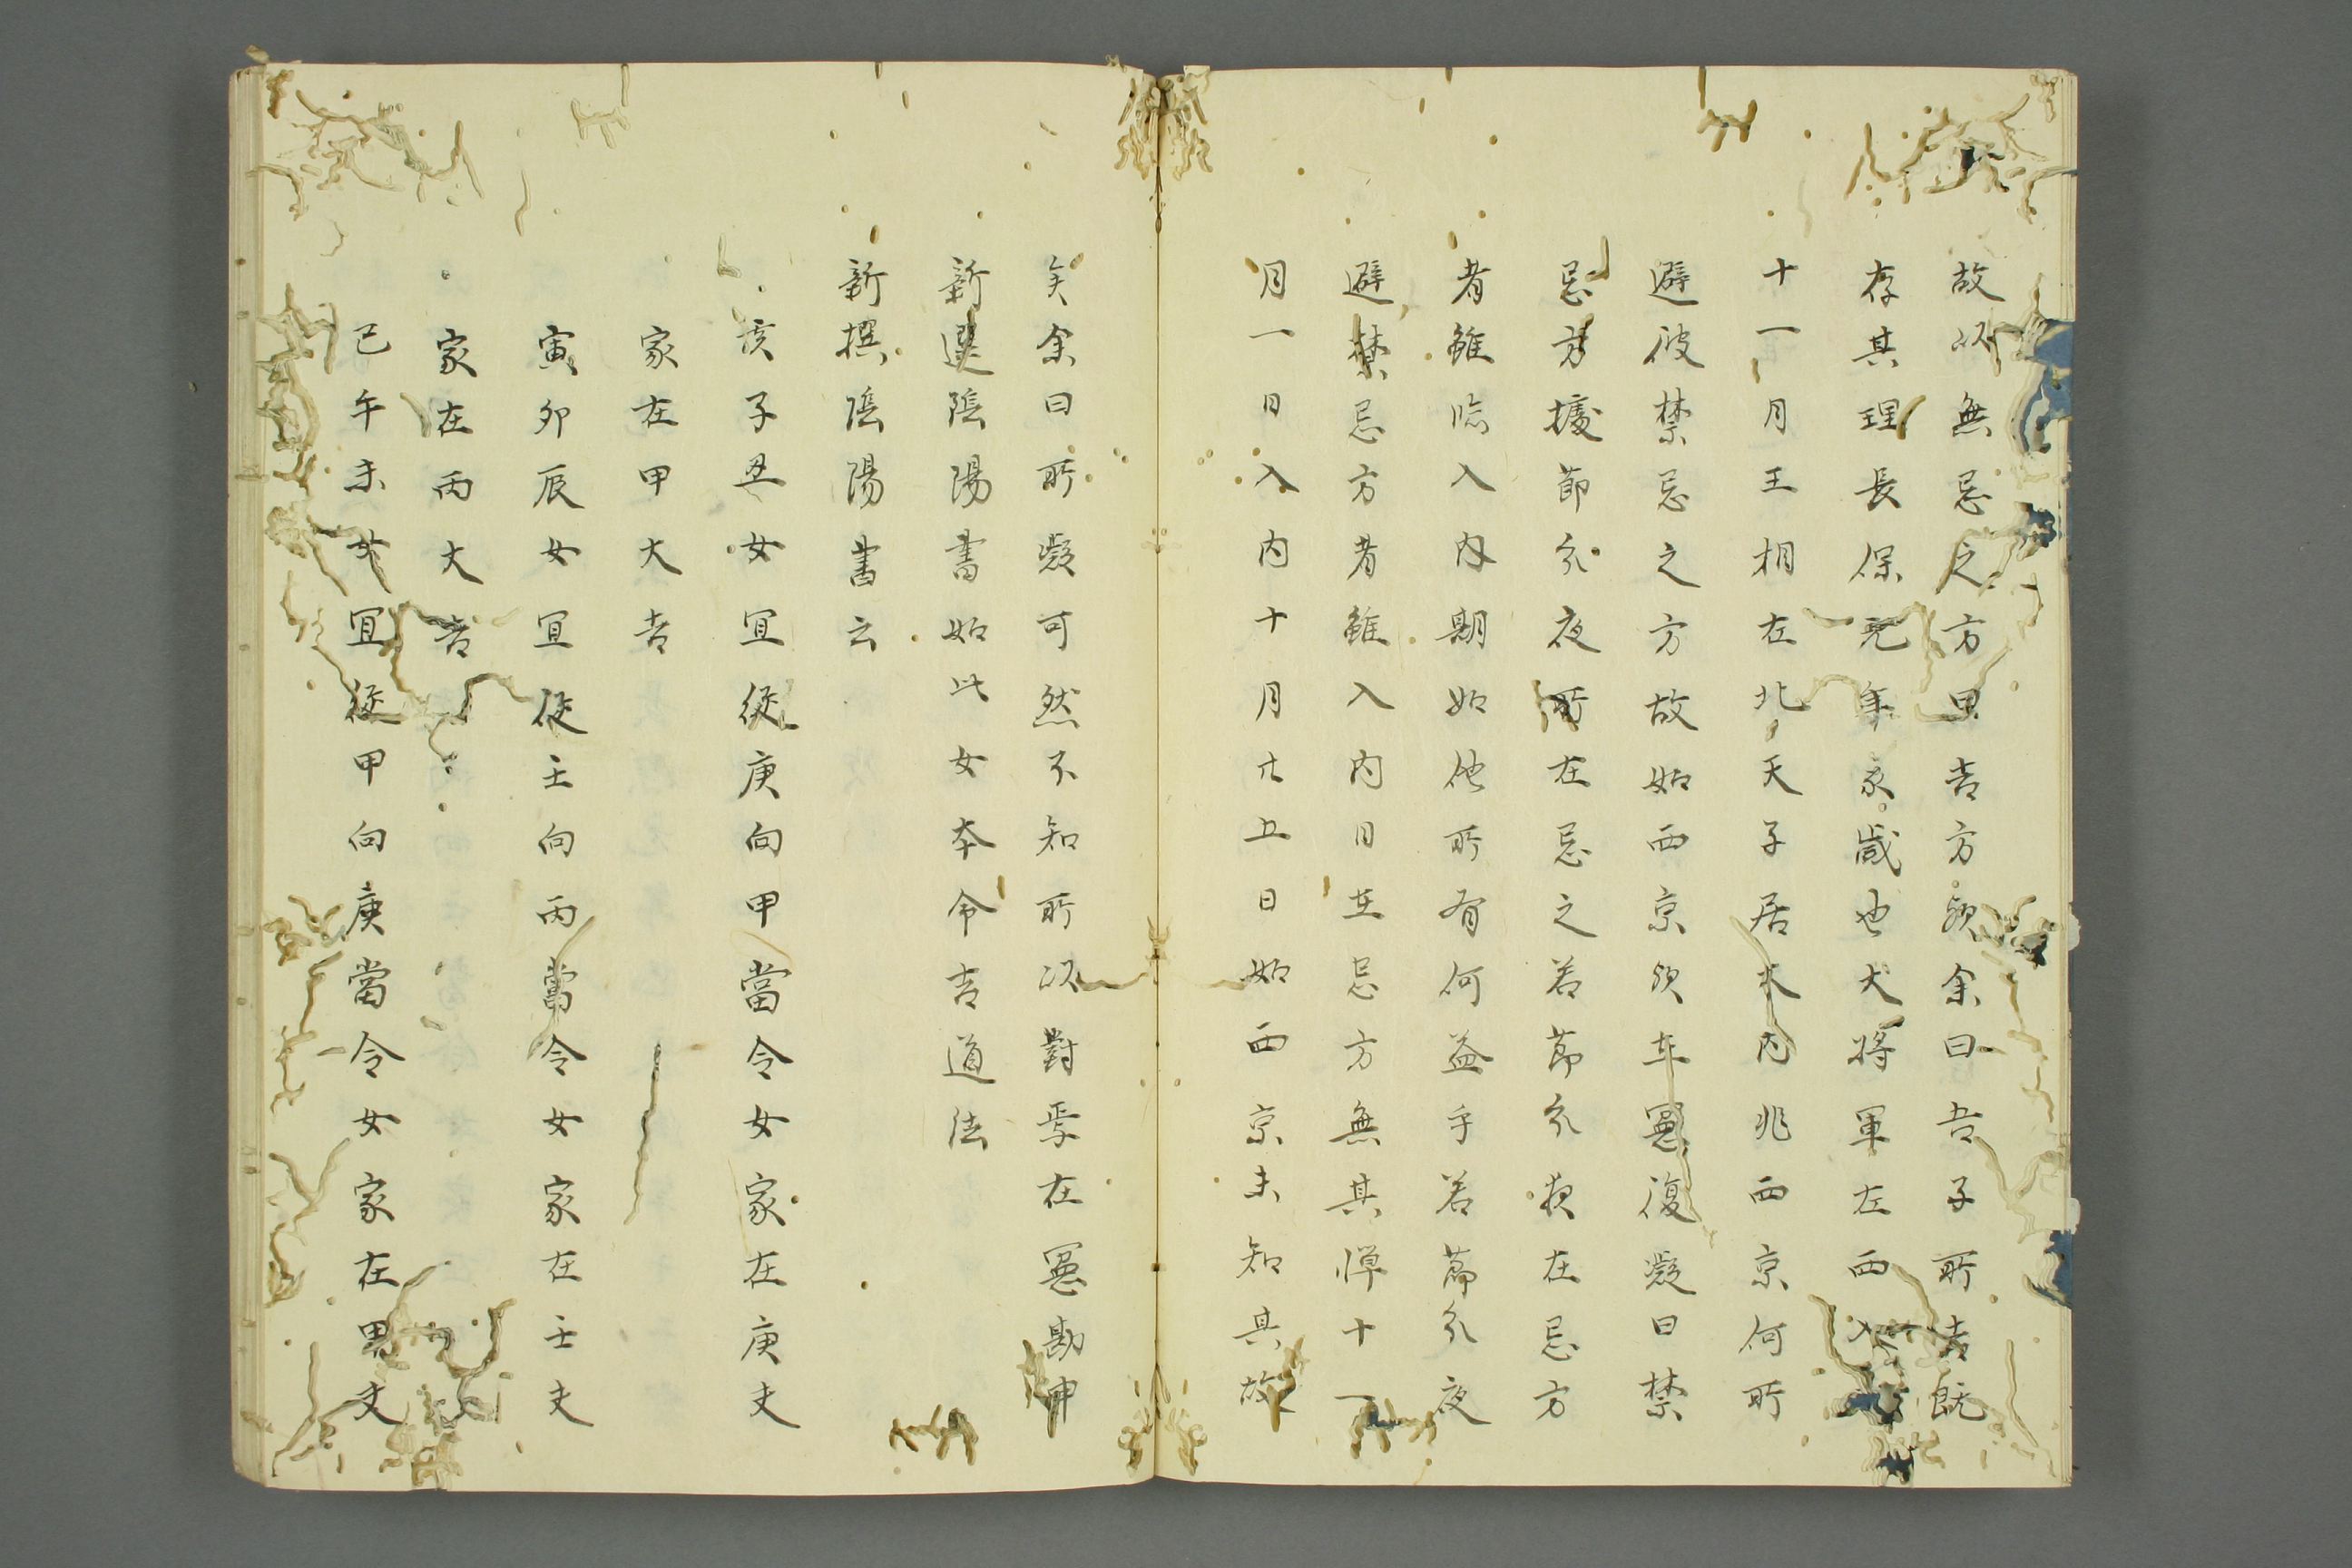 故以無忌之方甲吉方欤余曰吾子所言既
存其理長保元年家歳也大将軍在西入
十一月王相在北天子居木内非西京何所
避彼禁忌之方故如西京欤年冤復凝曰禁
忌方援節分夜所在忌之若節分夜在忌方
者雖臨入内期如他所有何益乎若節分夜
避禁忌方者雖入内日在忌方無其憚十一
月一日入内十月廿五日如西京未知其故
矣余曰所凝可然不知所以對焉在冤勘申
新選陰陽書如此女本命吉道法
新撰陰陽書云
亥子丑女宜従庚向甲當令女家在庚夫
家在甲大吉
寅卯辰女宜従壬向丙當令女家在壬夫
家在丙大吉
巳午未女宜従甲向庚當令女家在甲夫